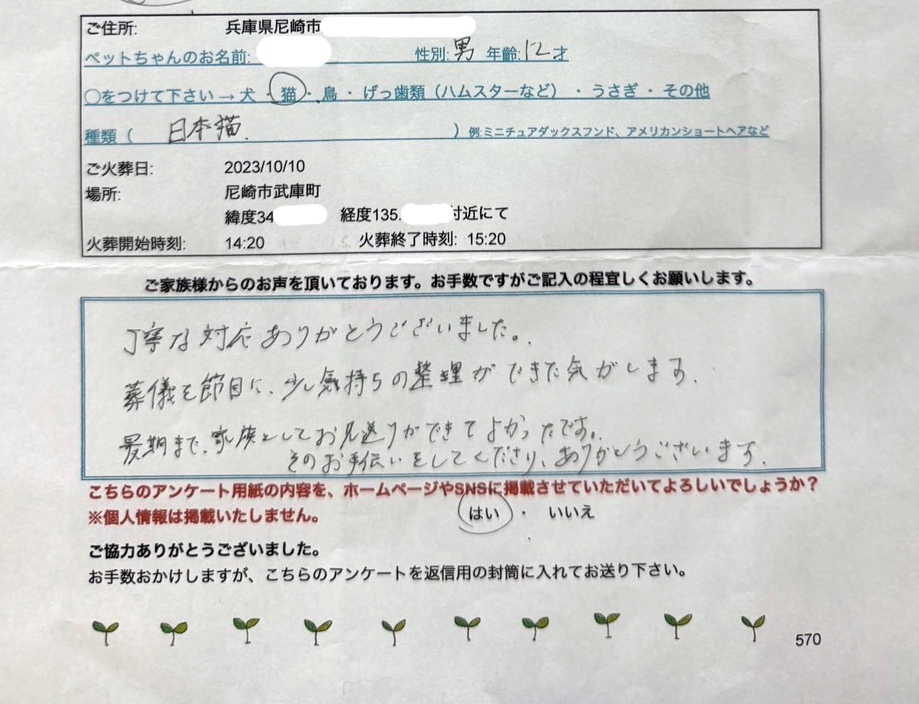 ご住所: 兵庫県尼崎市
ペットちゃんのお名前: 性別: 男 年齢: 12才
〇をつけて下さい→犬・猫・鳥・げっ歯類（ハムスターなど）・うさぎ・その他
種類（ 日本猫. ）例:ミニチュアダックスフンド、アメリカンショートヘアなど
ご火葬日: 2023/10/10
場所: 尼崎市武庫町
緯度34 経度135. 付近にて
火葬開始時刻: 14:20 火葬終了時刻: 15:20
ご家族様からのお声を頂いております。お手数ですがご記入の程宜しくお願いします。
丁寧な対応ありがとうございました。
葬儀を節目に、少し気持ちの整理ができた気がします.
最期まで、家族としてお見送りができてよかったです。
そのお手伝いをしてくださり、ありがとうございます.
こちらのアンケート用紙の内容を、ホームページやSNSに掲載させていただいてよろしいでしょうか？
※個人情報は掲載いたしません。 はい ・ いいえ
ご協力ありがとうございました。
お手数おかけしますが、こちらのアンケートを返信用の封筒に入れてお送り下さい。
570